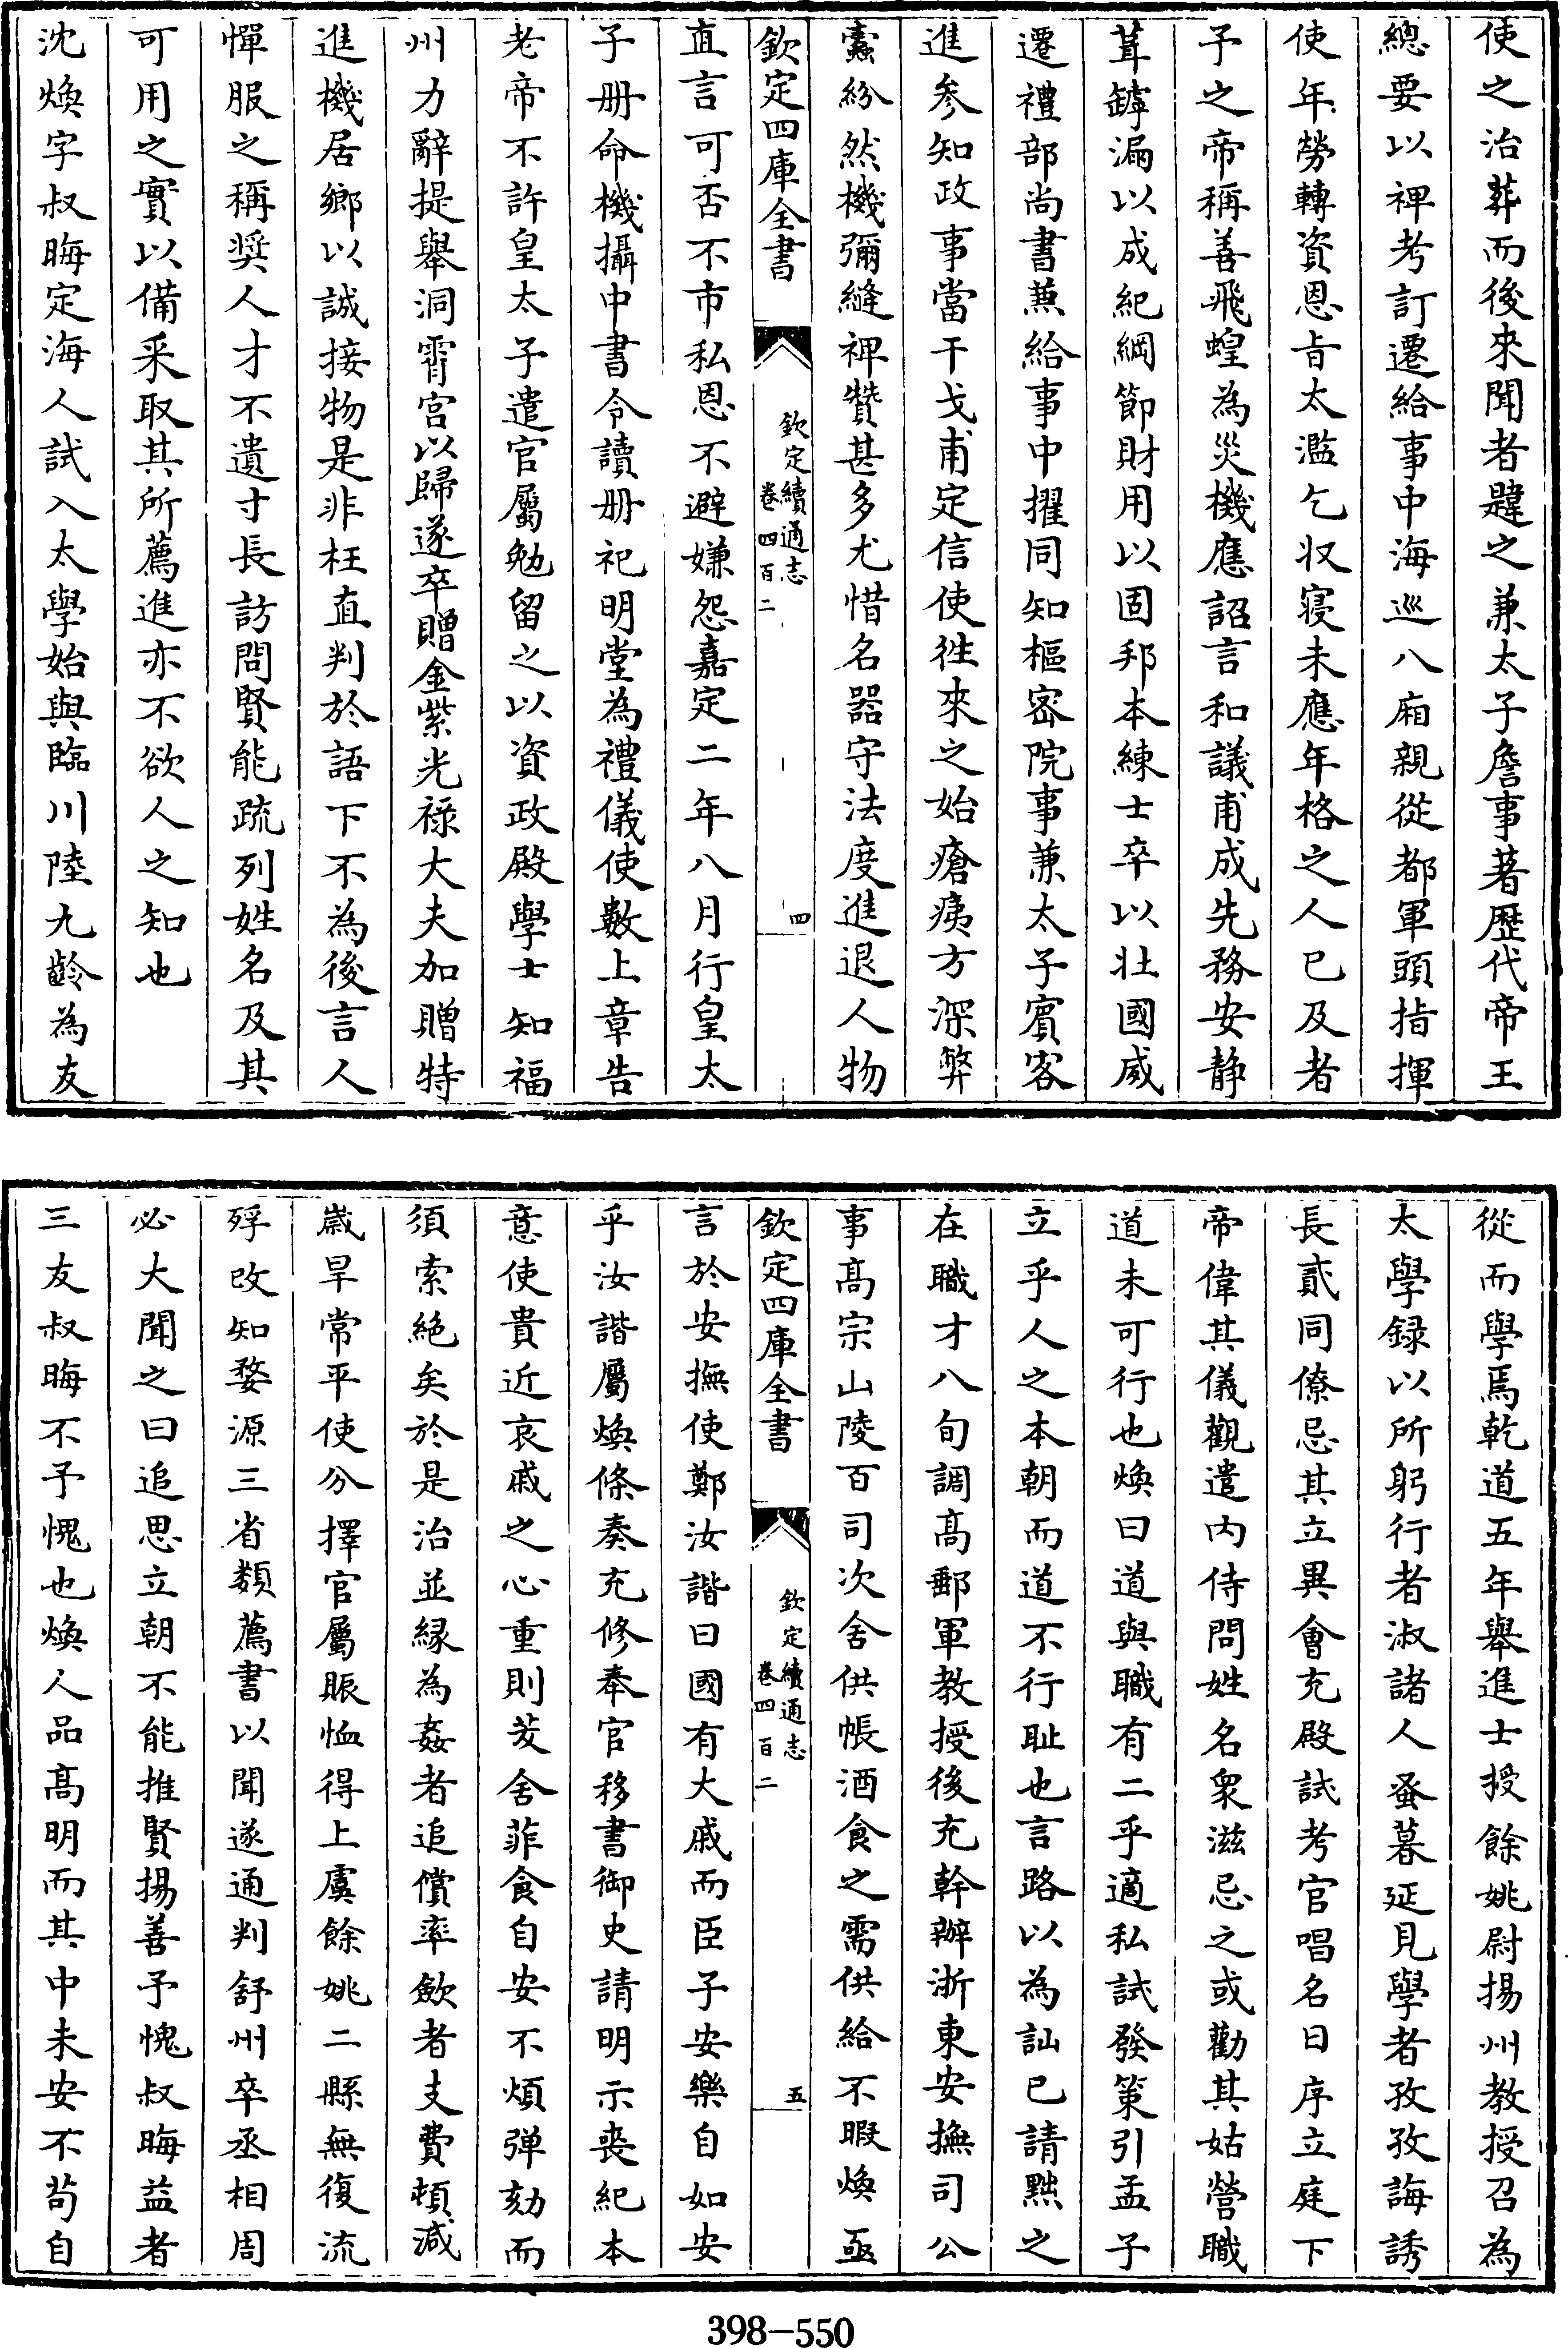 使之治葬而後來聞者韙之兼太子詹事著歷代帝王
總要以裨考訂遷給事中海巡八廂親從都軍頭指揮
使年勞轉資恩㫖太濫乞収寝未應年格之人已及者
予之帝稱善飛蝗為災機應詔言和議甫成先務安静
葺罅漏以成紀綱節財用以固邦本練士卒以壯國威
遷禮部尚書兼給事中擢同知樞宻院事兼太子賔客
進參知政事當干戈甫定信使徃來之始瘡痍方深弊
蠧紛然機彌縫裨贊甚多尤惜名器守法度進退人物
欽定四庫全書
欽定續通志
卷四百二
四
直言可否不市私恩不避嫌怨嘉定二年八月行皇太
子册命機攝中書令讀册祀明堂為禮儀使數上章告
老帝不許皇太子遣官屬勉留之以資政殿學士知福
州力辭提舉洞霄宫以歸遂卒贈金紫光祿大夫加贈特
進機居鄉以誠接物是非枉直判於語下不為後言人
憚服之稱奨人才不遺寸長訪問賢能疏列姓名及其
可用之實以備采取其所薦進亦不欲人之知也
沈煥字叔晦定海人試入太學始與臨川陸九齡為友
從而學焉乾道五年舉進士授餘姚尉揚州教授召為
太學録以所躬行者淑諸人蚤暮延見學者孜孜誨誘
長貳同僚忌其立異會充殿試考官唱名日序立庭下
帝偉其儀觀遣内侍問姓名衆滋忌之或勸其姑營職
道未可行也煥曰道與職有二乎適私試發策引孟子
立乎人之本朝而道不行耻也言路以為訕已請黜之
在職才八旬調髙郵軍教授後充幹辦浙東安撫司公
事髙宗山陵百司次舍供帳酒食之需供給不暇煥亟
欽定四庫全書
欽定續通志
卷四百二
五
言於安撫使鄭汝諧曰國有大戚而臣子安樂自如安
乎汝諧屬煥條奏充修奉官移書御史請明示喪紀本
意使貴近哀戚之心重則茇舍菲食自安不煩弹劾而
須索絶矣於是治並緣為姦者追償率斂者支費頓減
嵗旱常平使分擇官屬賑恤得上虞餘姚二縣無復流
殍改知婺源三省類薦書以聞遂通判舒州卒丞相周
必大聞之曰追思立朝不能推賢揚善予愧叔晦益者
三友叔晦不予愧也煥人品髙明而其中未安不苟自
398-550